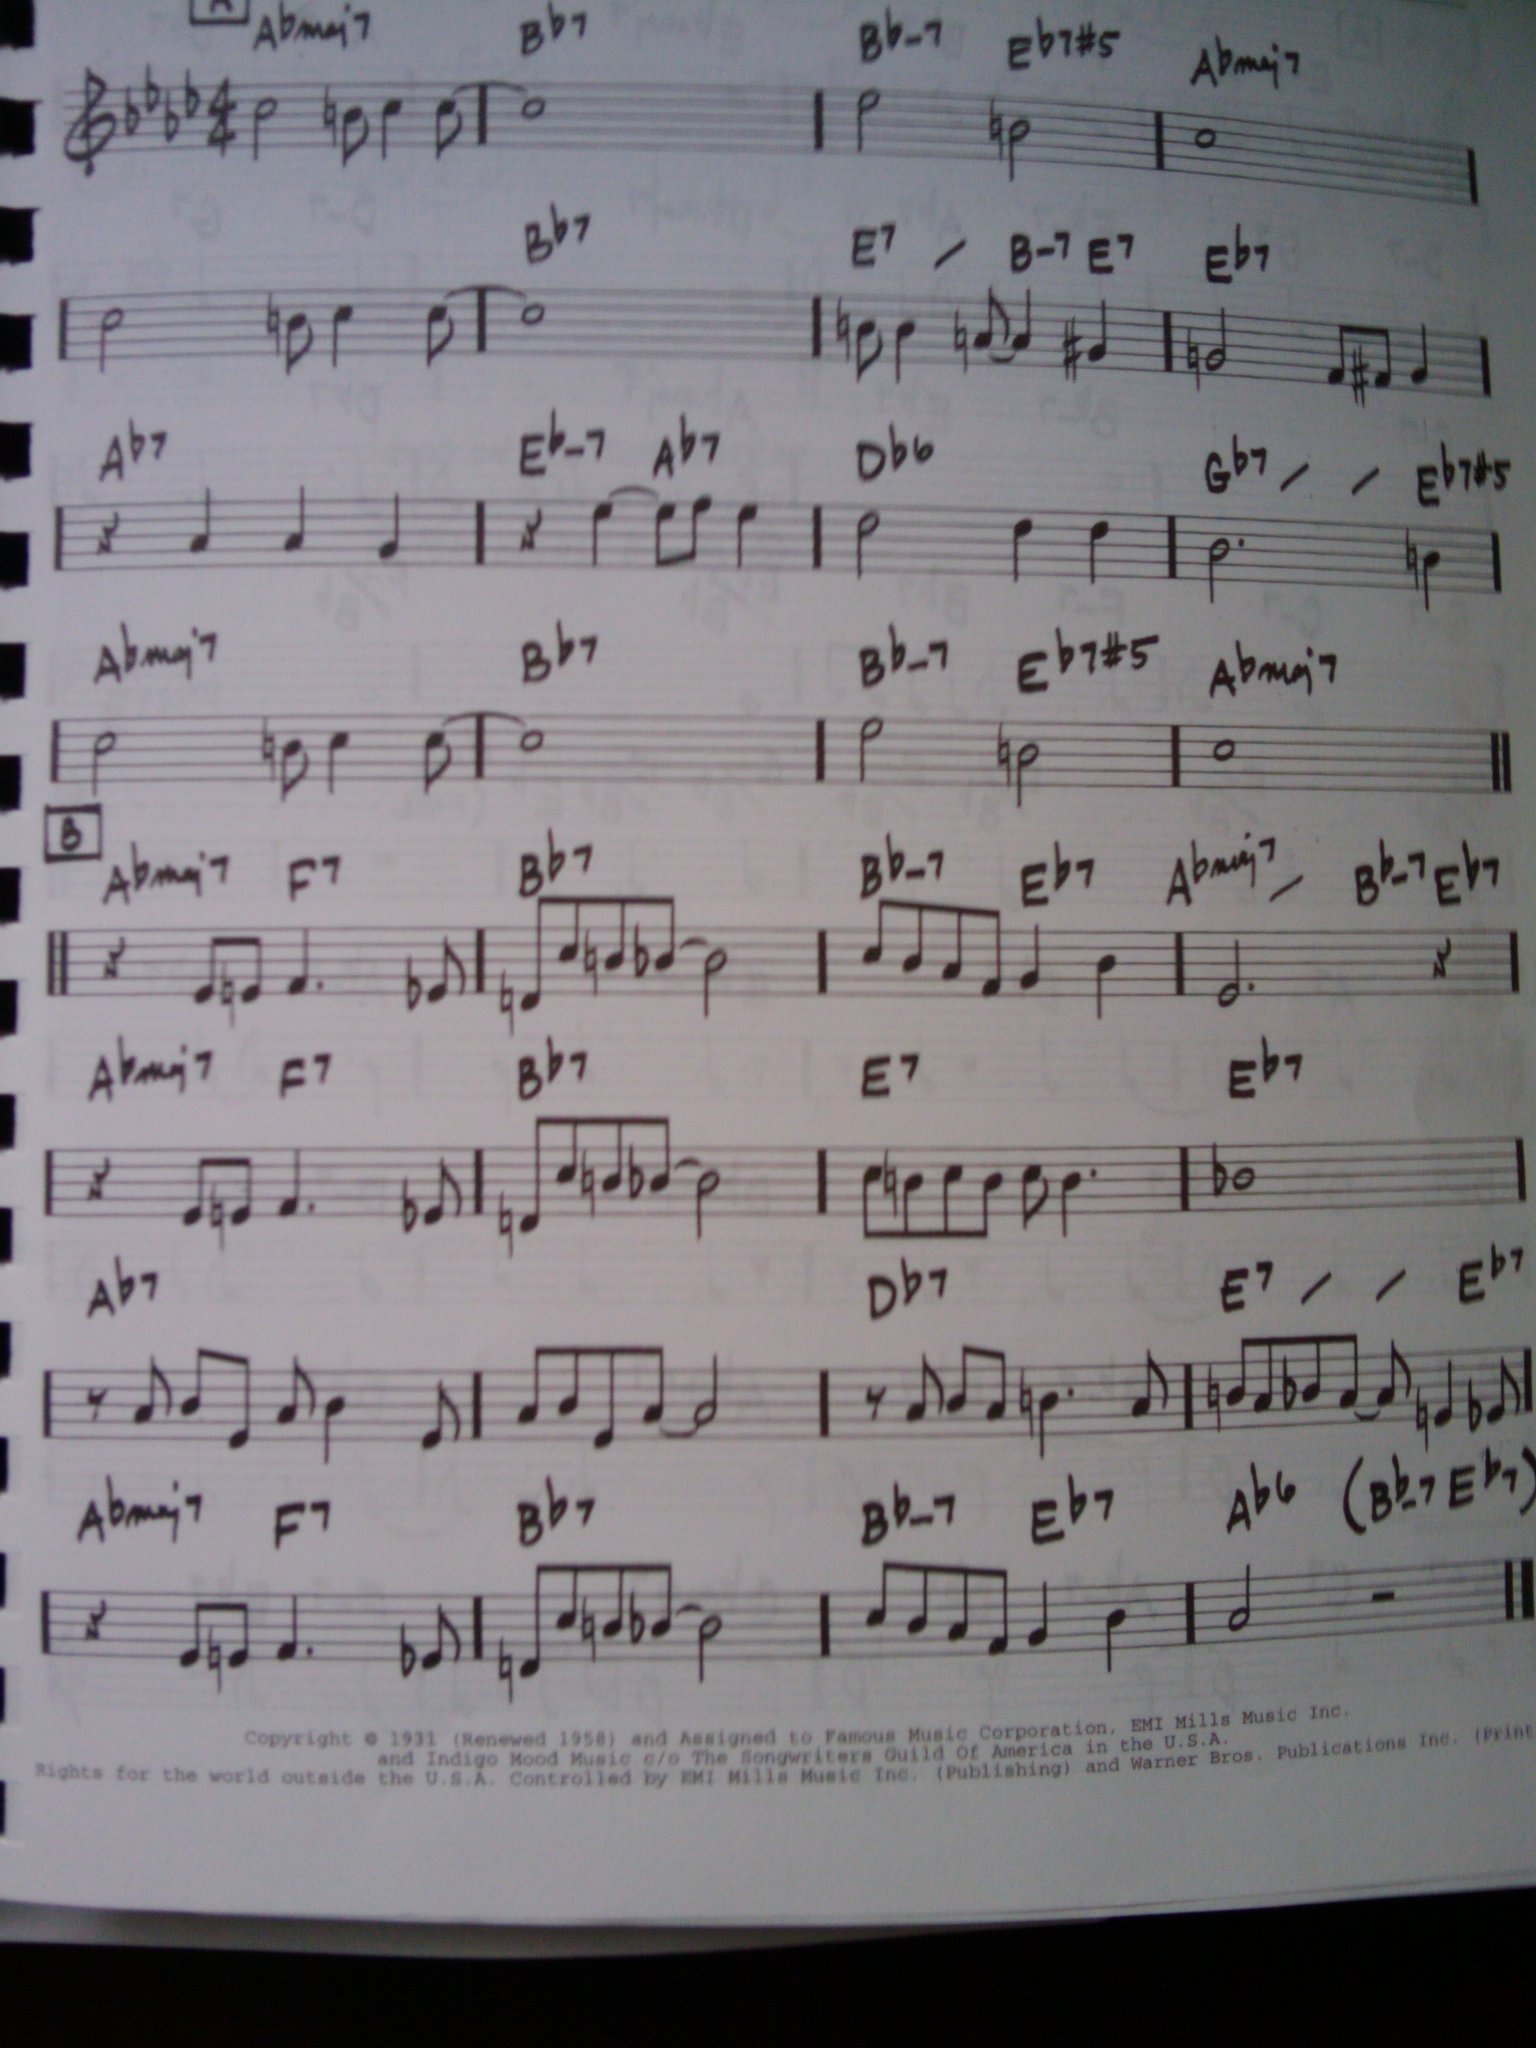 A
A♭maj7 B♭7 B♭-7 E♭7#5 A♭maj7
B♭7 E7 / B-7 E7 E♭7
A♭7 E♭-7 A♭7 D♭6 G♭7 / / E♭7#5
A♭maj7 B♭7 B♭-7 E♭7#5 A♭maj7
B
A♭maj7 F7 B♭7 B♭-7 E♭7 A♭maj7 / B♭-7 E♭7
A♭maj7 F7 B♭7 E7 E♭7
A♭7 D♭7 E7 / / E♭7
A♭maj7 F7 B♭7 B♭-7 E♭7 A♭6 (B♭-7 E♭7)
Copyright © 1931 (Renewed 1958) and Assigned to Famous Music Corporation, EMI Mills Music Inc.
and Indigo Mood Music c/o The Songwriters Guild Of America in the U.S.A.
Rights for the world outside the U.S.A. Controlled by EMI Mills Music Inc. (Publishing) and Warner Bros. Publications Inc. (Print